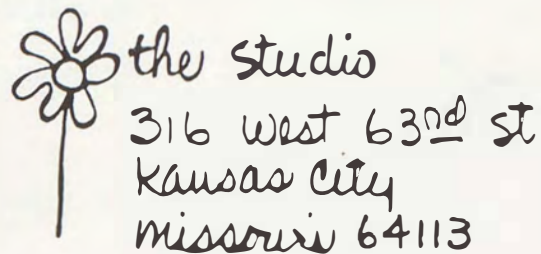 the studio
316 west 63rd st
Kansas City
missouri 64113